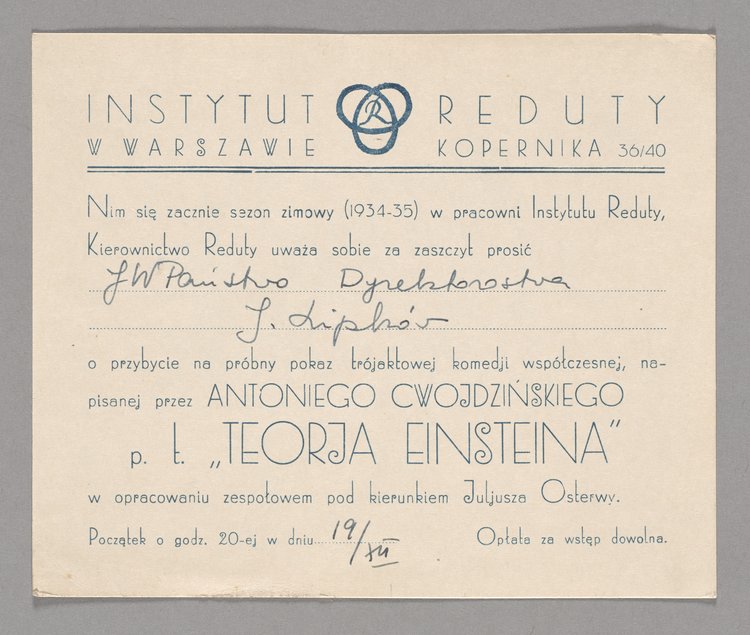 INSTYTUT R REDUTY
W WARSZAWIE KOPERNIKA 36/40
Nim się zacznie sezon zimowy (1934-35) w pracowni Instytutu Reduty,
Kierownictwo Reduty uważa sobie za zaszczyt prosić
JWPaństwo Dyrektorostwa
J. Lipków
o przybycie na próbny pokaz trójaktowej komedji współczesnej, na-
pisanej przez ANTONIEGO CWOJDZIŃSKIEGO
p. t. „TEORJA EINSTEINA”
w opracowaniu zespołowem pod kierunkiem Juljusza Osterwy.
Początek o godz. 20-ej w dniu 19/XII Opłata za wstęp dowolna.